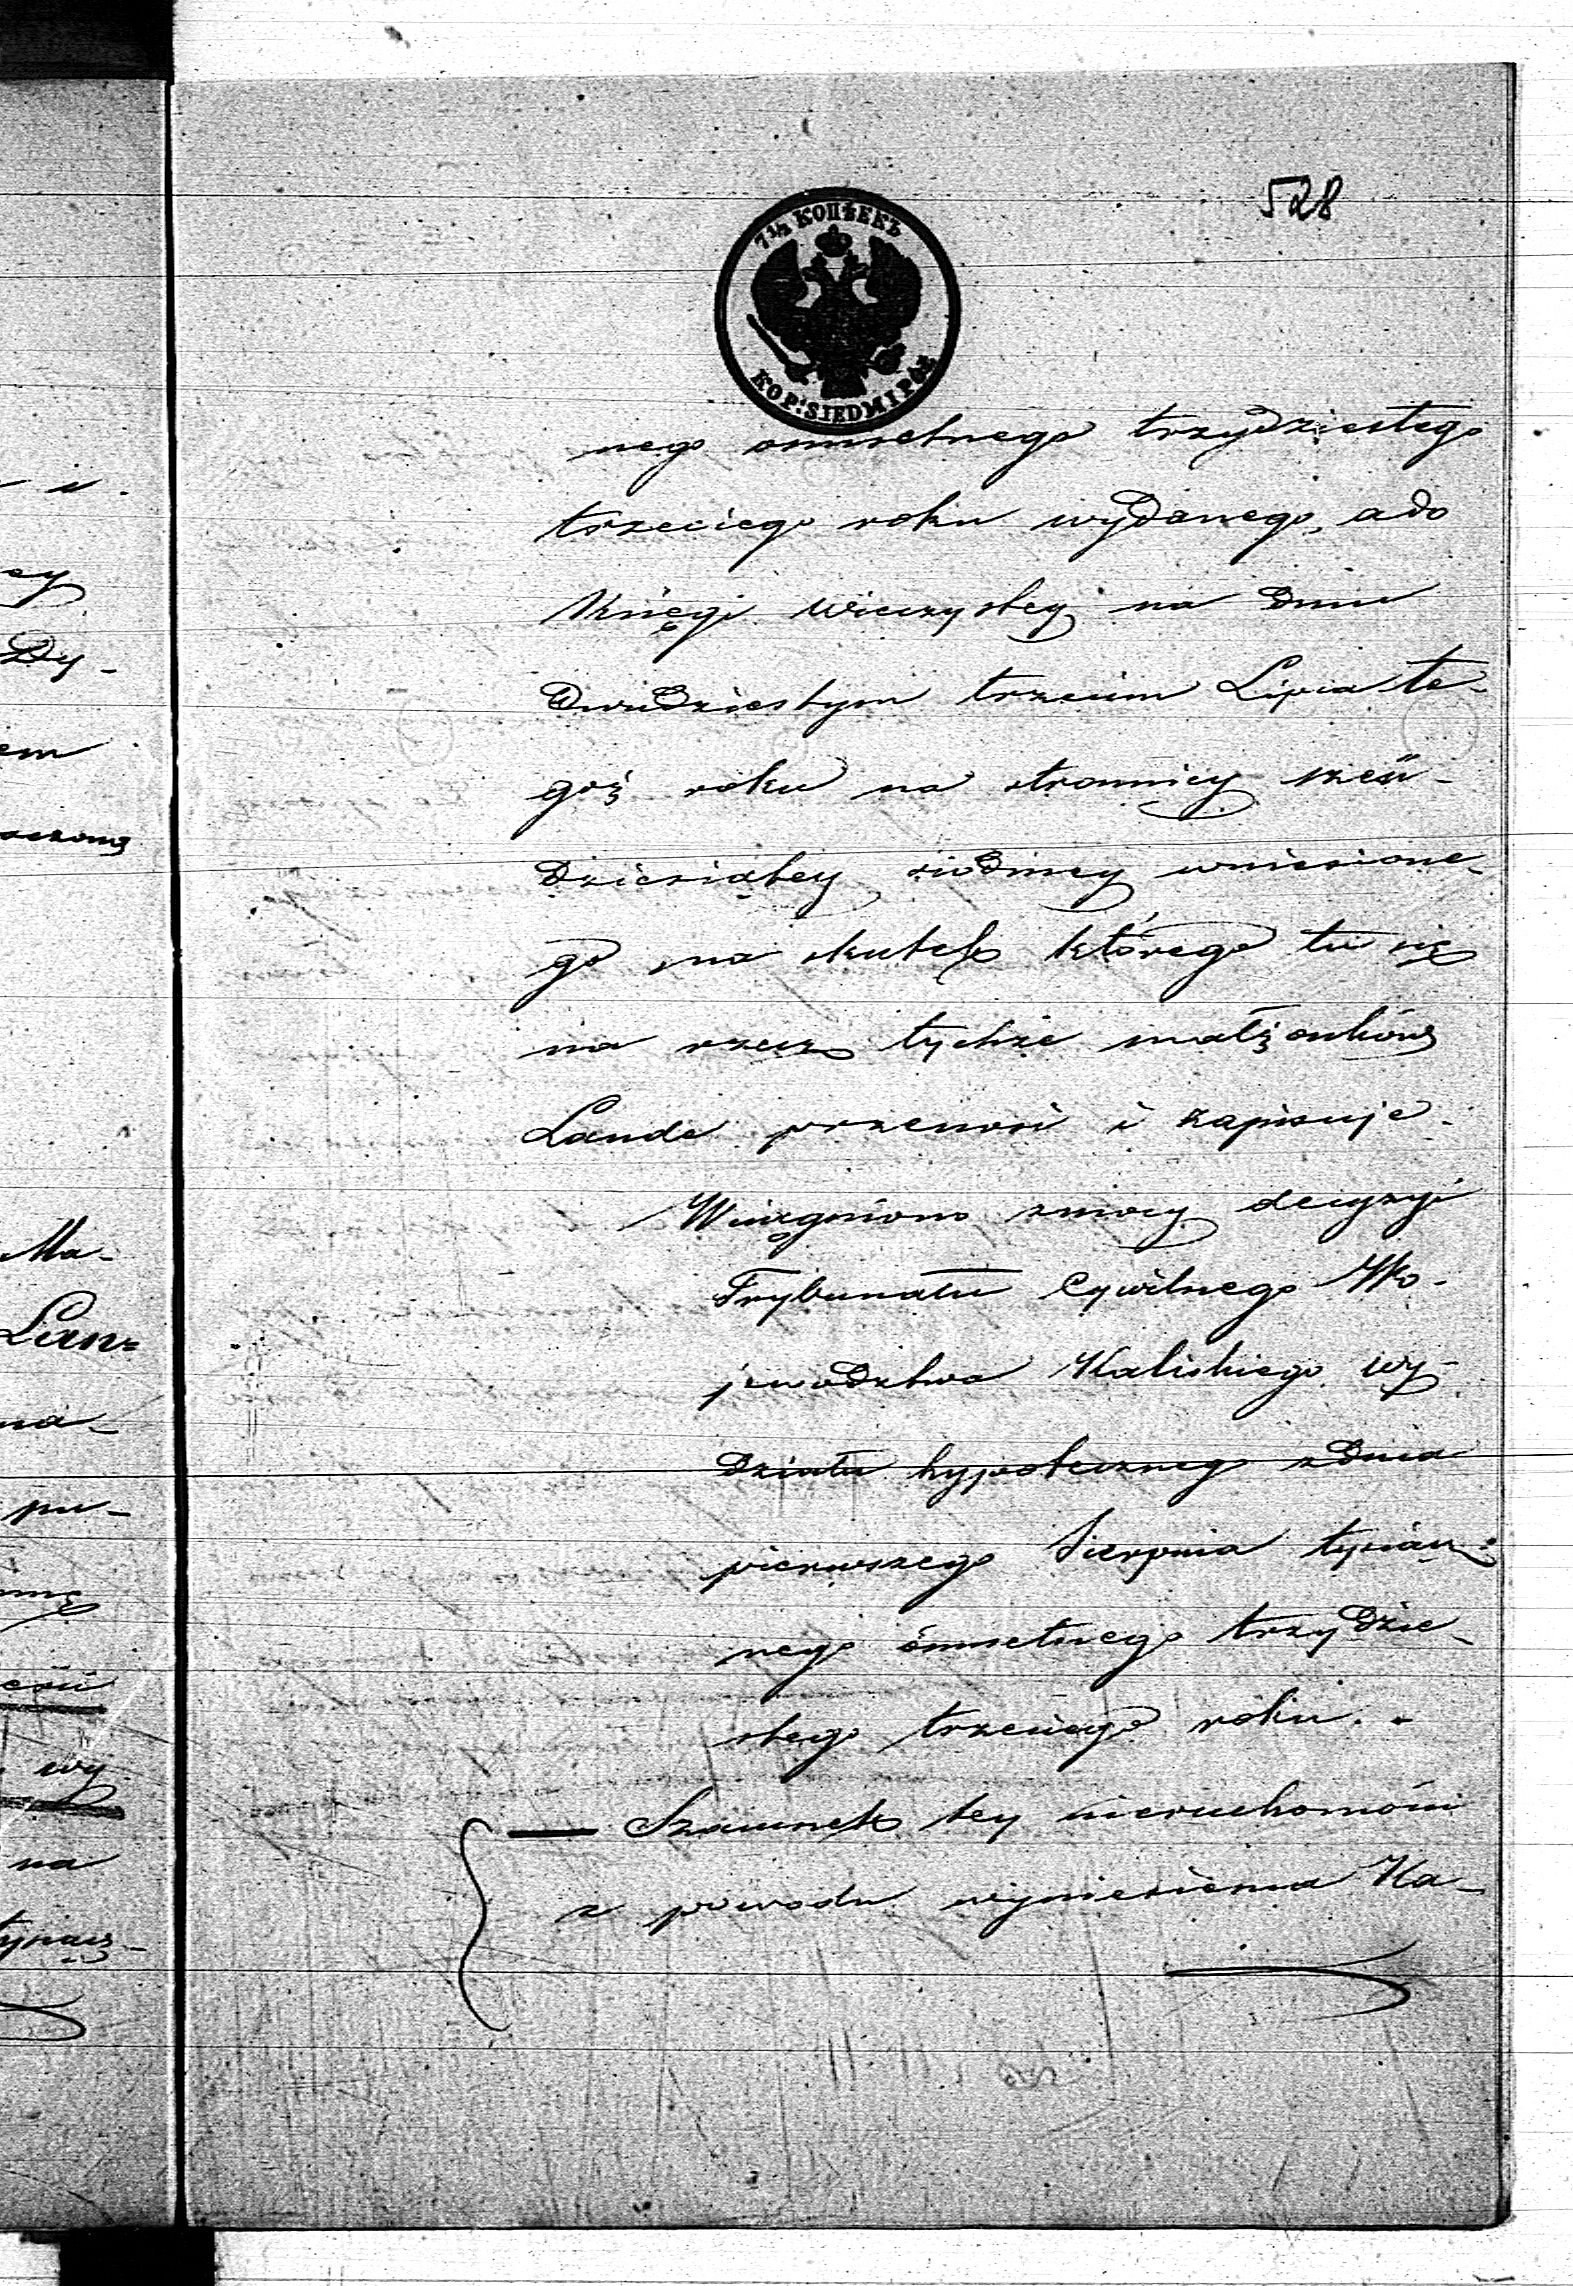 528
7½ КОПѢЕКЪ
KOP: SIEDM I PÓŁ
nego osmsetnego trzydziestego
trzeciego roku wydanego, a do
Księgi wieczystey na dniu
dwudziestym trzecim Lipca te-
goż roku na stronnicy sześć-
dziesiątey siódmey wniesione-
go na skutek którego tu się
na rzecz tychże małżonków
Lande przenosi i zapisuje.
Wciągniono z mocy decyzyi
Trybunału Cywilnego Wo-
jewództwa Kaliskiego wy-
działu hypotecznego z dnia
pierwszego Sierpnia tysiącz-
nego ósmsetnego trzydzie-
stego trzeciego roku. -
— Szacunek tey nieruchomości
z powodu wyniesienia Ka-
ey
Dy-
em
Ma-
Lan=
na-
pu-
wy
na
tysiącz-